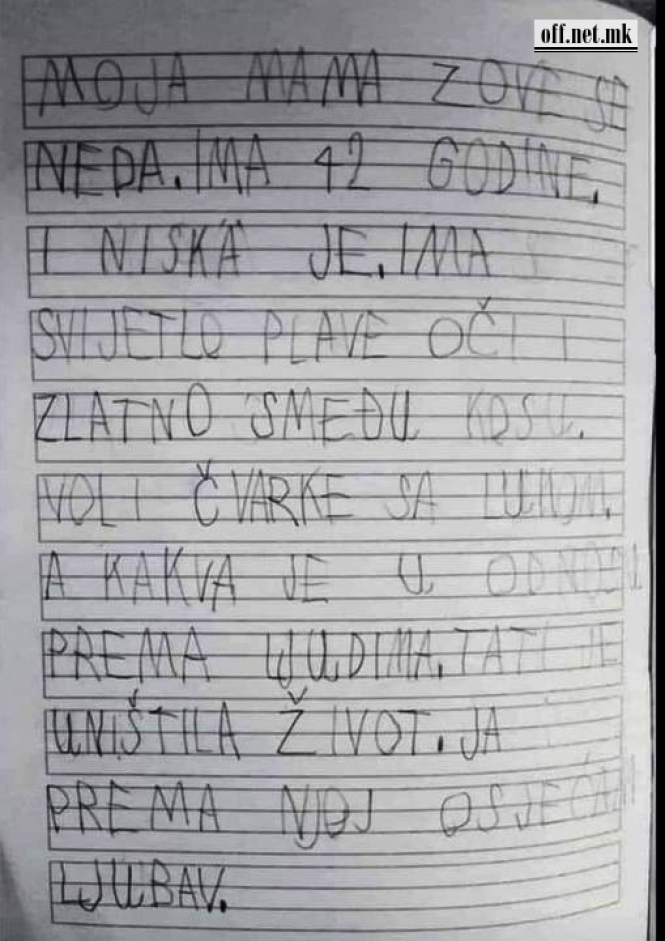 off.net.mk
MOJA MAMA ZOVE SE
NEDA. IMA 42 GODINE.
I NISKA JE. IMA
SVIJETLO PLAVE OČI I
ZLATNO SMEĐU KOSU.
VOLI ČVARKE SA LUKOM.
A KAKVA JE U ODNOSU
PREMA LJUDIMA. TATI JE
UNIŠTILA ŽIVOT. JA
PREMA NJOJ OSJEĆAM
LJUBAV.